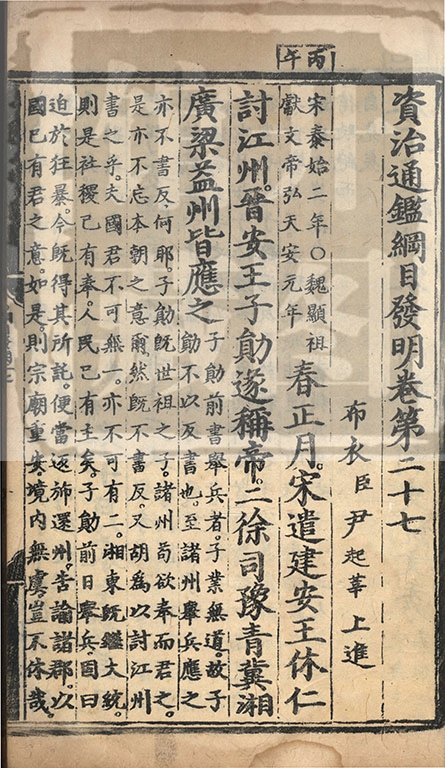 丙午
資治通鑑綱目發明卷第二十七
布衣臣尹起莘上進
宋泰始二年○魏顯祖
獻文帝弘天安元年
春正月。宋遣建安王休仁
討江州。晉安王子勛遂稱帝。二徐司豫青冀湘
廣梁益州皆應之
子勛前書舉兵者。子業無道。故子
勛不以反書也。至諸州舉兵應之
亦不書反。何耶。子勛旣世祖之子。諸州苟欲奉而君之。
是亦不忘本朝之意爾。然旣不書反。又胡爲以討江州
書之乎。夫國君不可無一。亦不可有二。湘東旣繼大統。
則是社稷已有奉。人民已有主矣。子勛前日舉兵。固曰
迫於狂暴。今旣得其所託。便當返斾還州。告諭諸郡。以
國已有君之意。如是。則宗廟重安。境内無虞。豈不休哉。